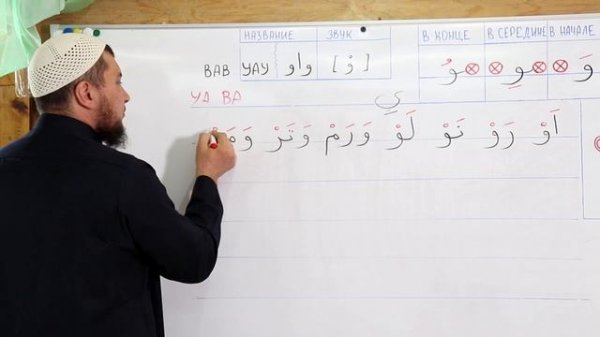 НАЗВАНИЕ ЗВУК В КОНЦЕ В СЕРЕДИНЕ В НАЧАЛЕ
ВАВ УАУ واو [ وْ ] وُ وِ وَ
УА ВА
اَوْ رَوْ نَوْ لَوْ وَرَمْ وَتَرْ